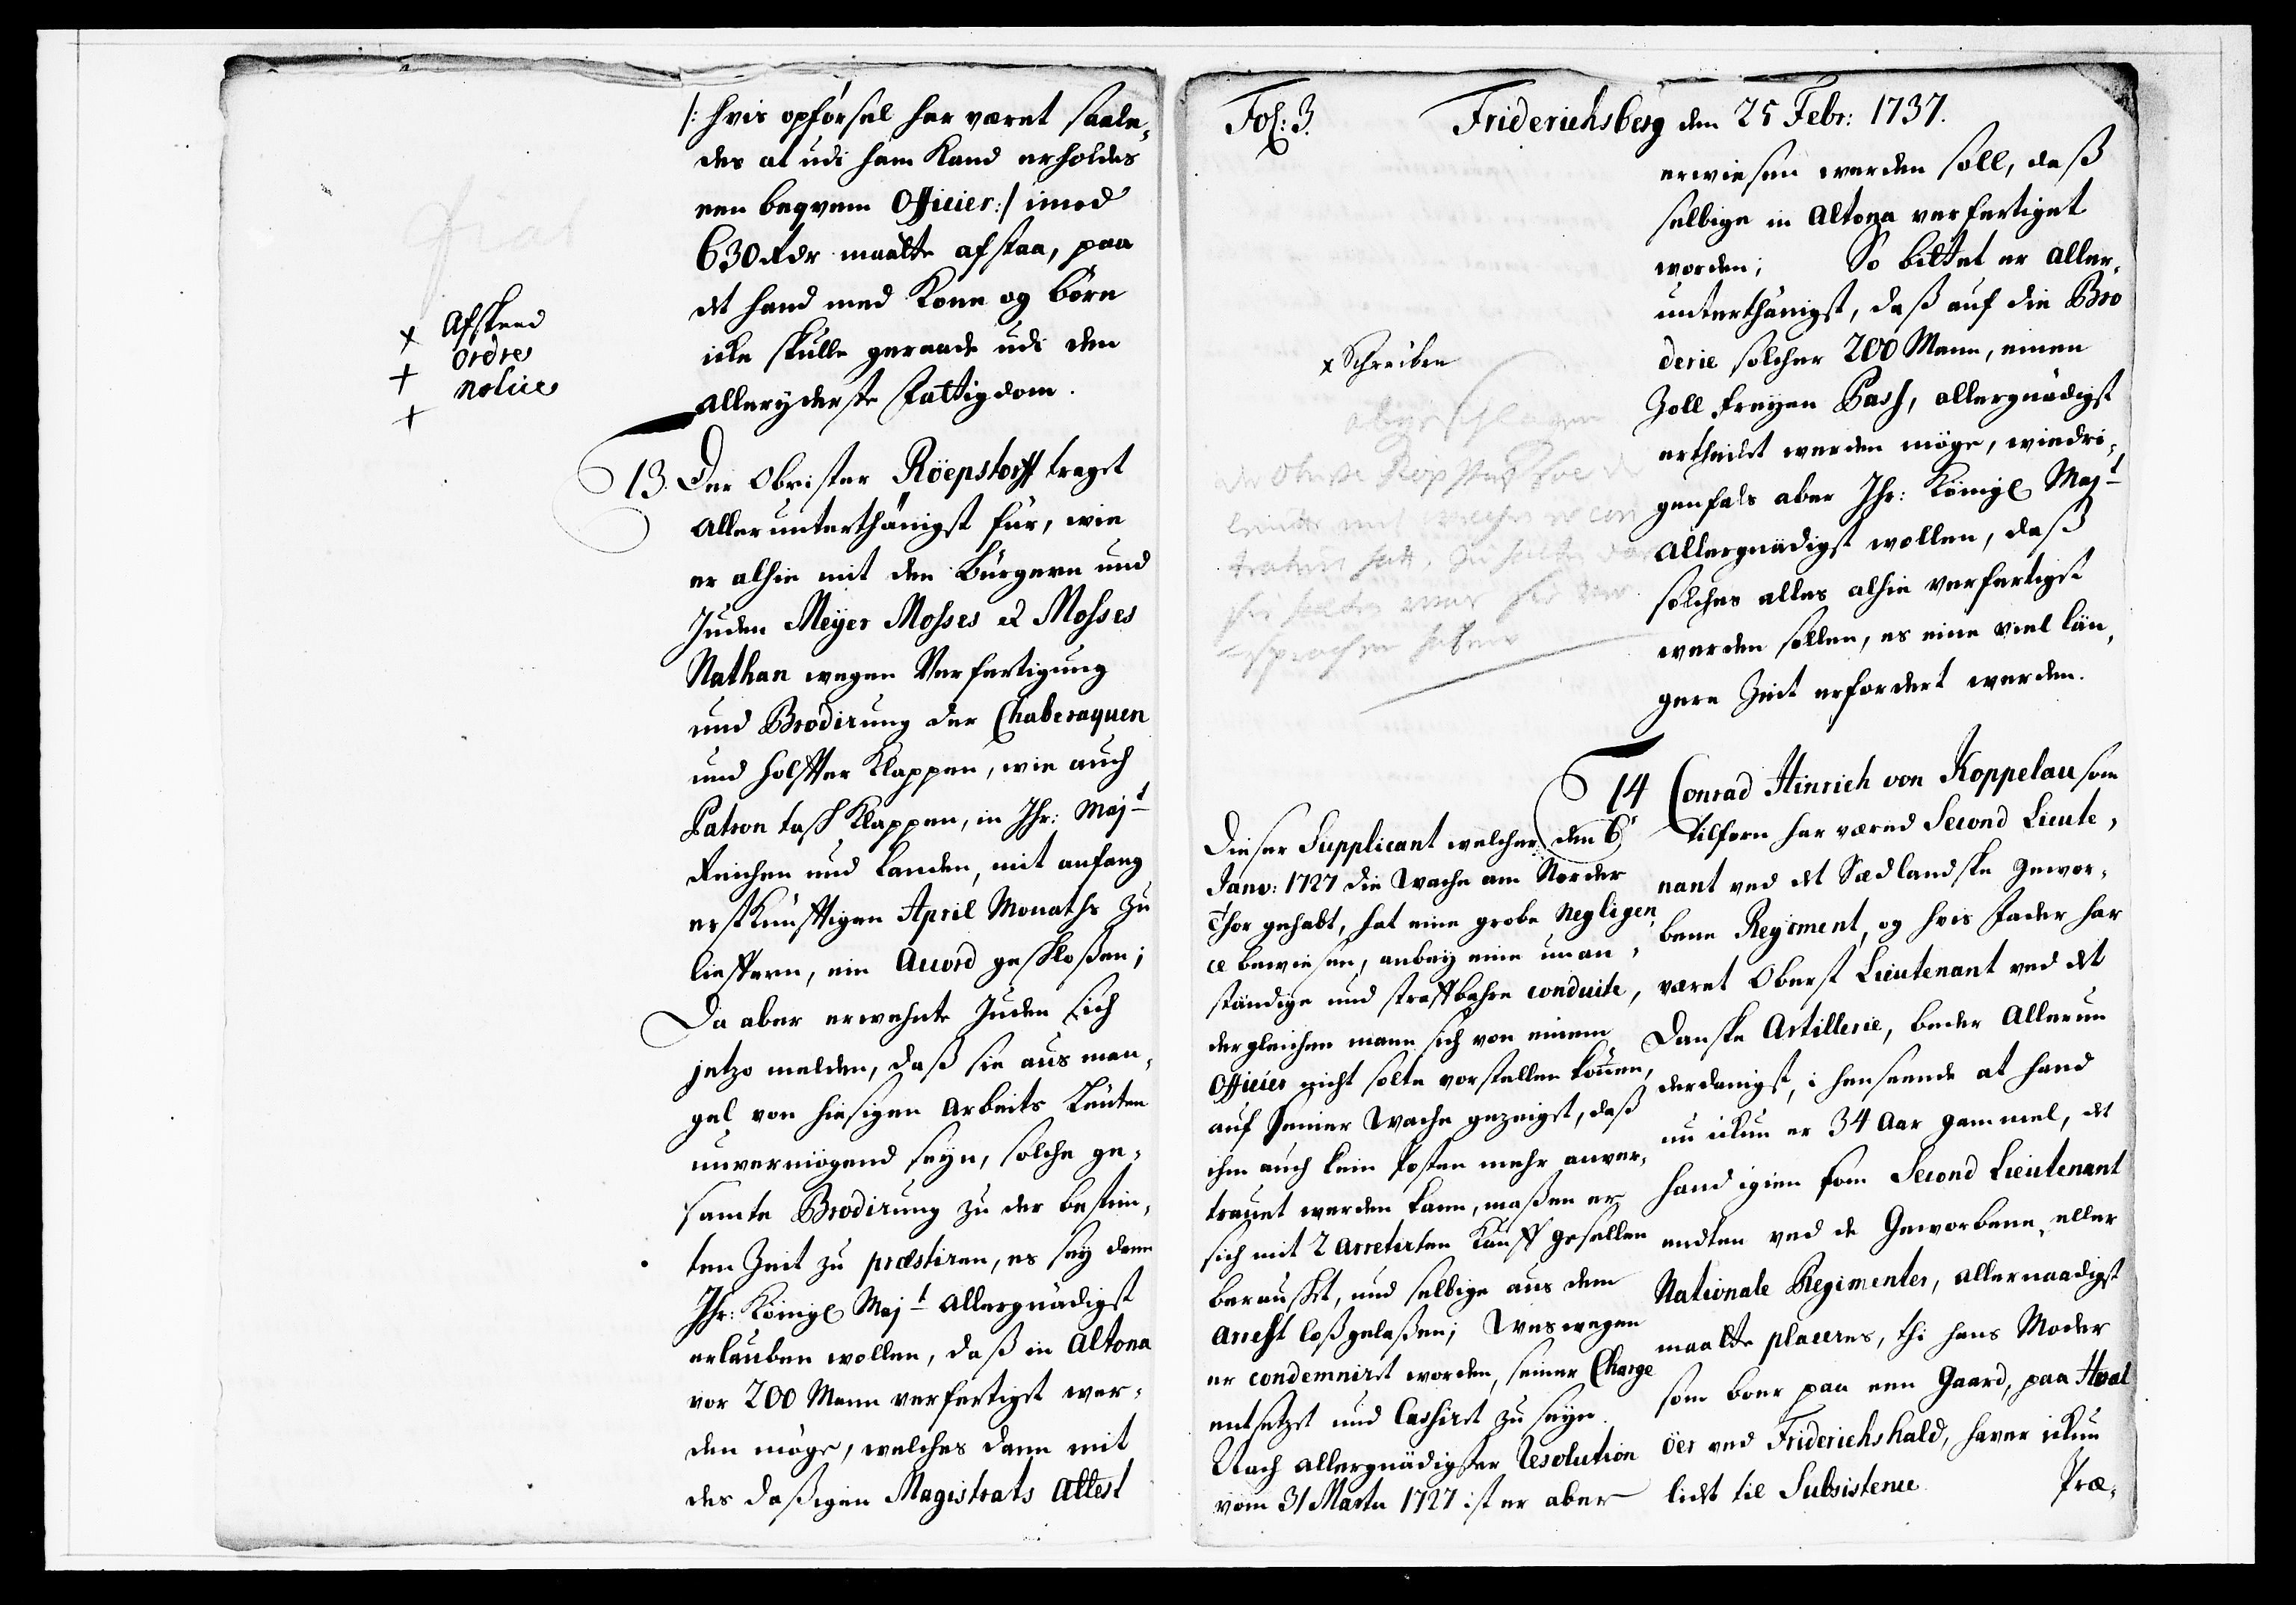 /: hvis opförsel har været saale,
des at udi ham Kand erholdes
een beqvem Officier :/ imod
630 Rdr maatte afstaa, paa
det hand med Kone og börn
icke skulle geraade udi den
alleryderste Fattigdom.
x Afskeed
+ Ordre
+ notice
fiat
13. Der Obrister Röepstorff traget
Allerunterthänigst für, wie
er alhie mit den Bürgern und
Juden Meyer Mosses & Mosses
Nathan wegen Verfertigung
und Brodirung der Chaberaquen
und holffter Klappen, wie auch
Patron tasch Klappen, in Ihr: Majt
Reichen und Landen, mit anfang
erstkünfftigen April Monaths zu
lieffern, ein Accord geschloßen;
Da aber erwehnte Juden sich
jetzo melden, daß sie aus man,
gel von hiesigen Arbeits Leuten
unvermögend seyn, solche ge,
samte Brodirung zu der bestim,
ten Zeit zu præstiren, es sey denn
Ihr: Königl Majt Allergnädigst
erlauben wollen, daß in Altona
vor 200 Mann verfertiget wer,
den möge, welches dann mit
des daßigen Magistrats Attest
Fol: 3. Friderichsberg den 25 Febr: 1737.
erwiesen werden soll, daß
selbige in Altona verfertiget
worden; So bittet er aller,
unterthänigst, daß auf die Bro
derie solcher 200 Mann, einen
Zoll freyen Pass, allergnädigst
ertheilet werden möge, wiedri,
genfals aber Ihr: Königl Majt
Allergnädigst wollen, daß
solches alles alhie verfertiget
werden sollen, es eine viel län,
gere Zeit erfordert werden.
x Schreiben
abgeschlagen
14 Conrad Hinrich von Koppelau som
tilforn har væred Second Lieute,
nant ved det Sædlandske gewor,
bene Regiment, og hvis Fader har
været Oberst Lieutenant ved det
Danske Artillerie, beder Allerun
derdanigst, i henseende at hand
nu ickun er 34 Aar gammel, at
hand igien som Second Lieutenant
endten ved de Geworbene eller
Nationale Regimenter, allernaadigst
maatte placeres, thi hans Moder
som boer paa een Gaard, paa Hval
öer ved Friderichshald, haver ickun
lidet til Subsistence
Præ,
Dieser Supplicant welcher den 6'
Janv: 1727 die Wache am Norder
Thor gehabt, hat eine grobe Negligen
ce bewiesen, anbey eine unan,
ständige und straffbahre conduite,
dergleichen mann sich von einem
Officier nicht solte vorstellen können,
auf seiner Wache gezeiget, daß
ihm auch kein Posten mehr anver,
trauet werden kann, maßen er
sich mit 2 arretirten Kauff gesellen
berauschet, und selbige aus dem
Arrest loßgelaßen; Weswegen
er condemniret worden, seiner Charge
entsetzet und Cassiret zu seyn.
Nach allergnädigster Resolution
vom 31 Martii 1727 ist er aber